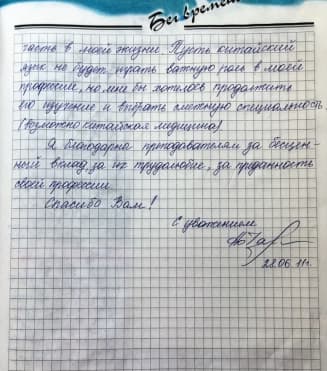 Бег времени
часть в моей жизни. Пусть китайский
язык не будет играть важную роль в моей
професии, но мне бы хотелось продолжить
его изучение и выбрать смежную специальность
(возможно китайская медицина).
Я благодарна преподавателям за бесцен-
ный вклад, за их трудолюбие, за преданность
своей профессии.
Спасибо Вам!
С уважением
28.06.11г.